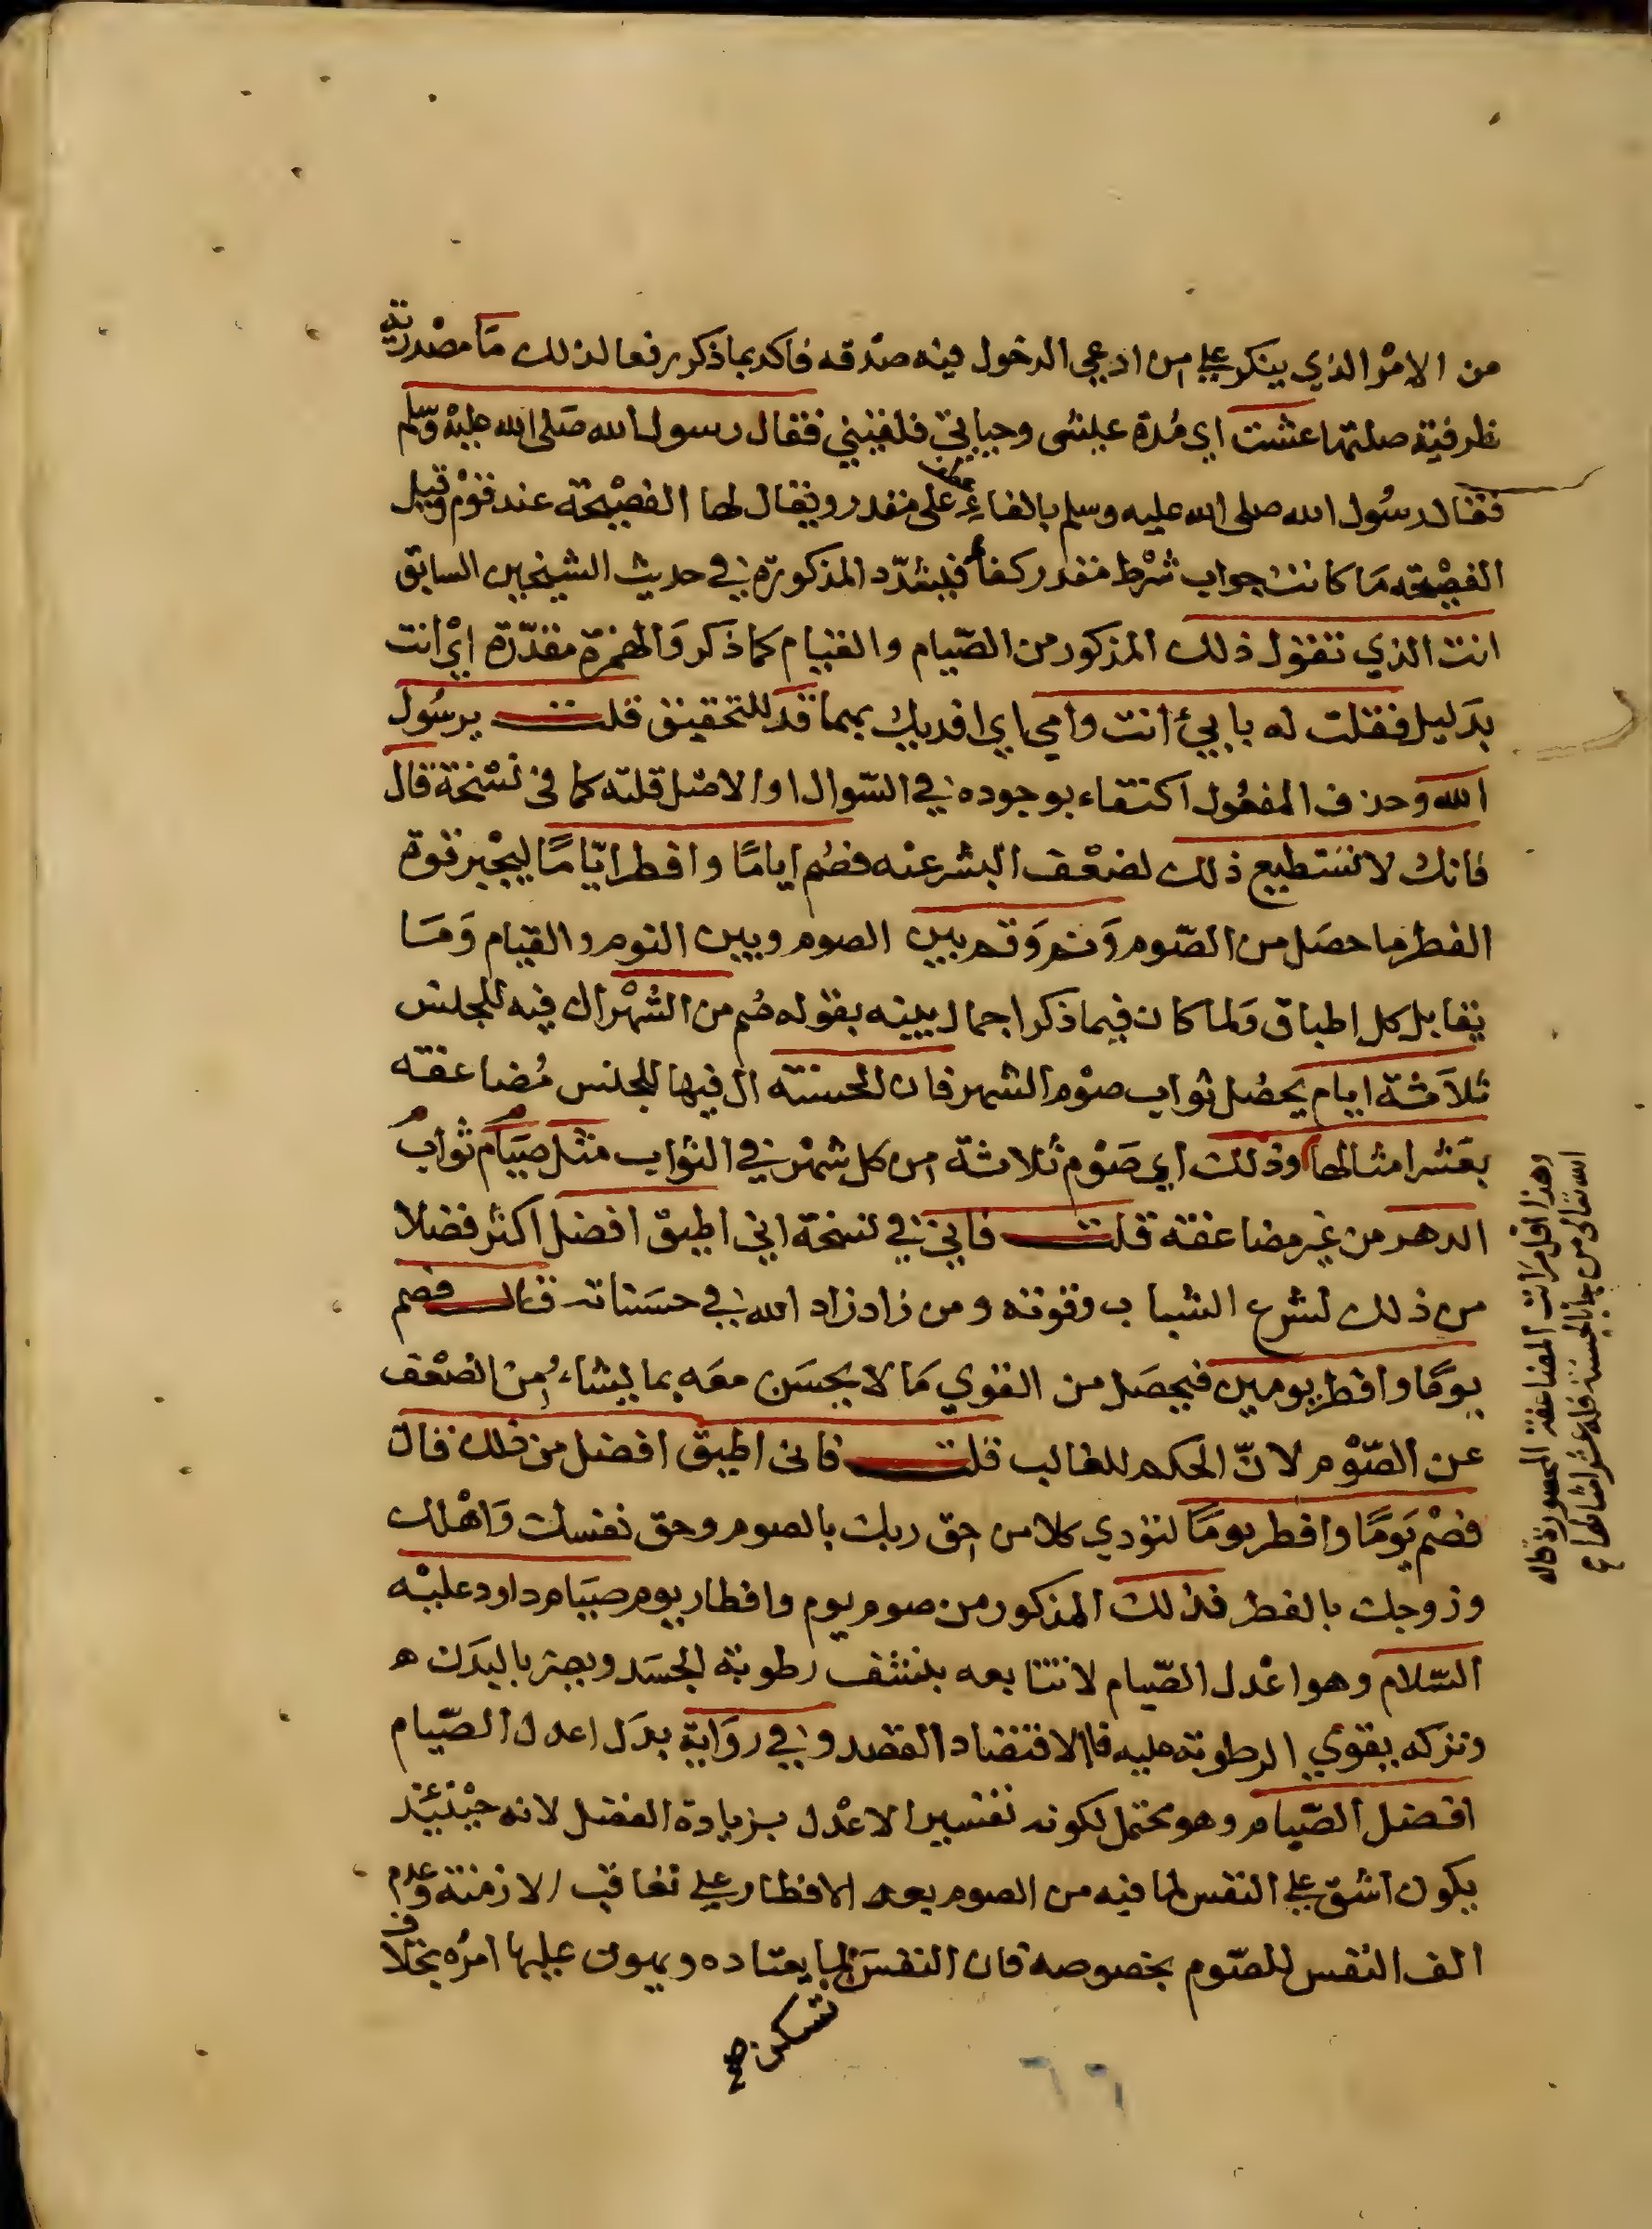 من الامْر الذي ينكر علي من ادعي الدخول فيه صدقه فاكد بما ذكر رفعا لذلك مَا مصْدرية
ظرفية صلتها عشت اي مُدة عيشى وحياتي فلقيني فقال رسول الله صَلى الله عليْه وسّلم
فقال رسُول الله صلى الله عليه وسلم بالفاءِ عطف على مقدر ويقال لها الفصيْحة عند قوْم وقيل
الفصيْحة مَا كانت جواب شرْط مقدر كفأ فيشدّد المذكورة في حديث الشيخين السابق
انت الذي تقول ذلك المذكور من الصّيام والقيام كما ذكر وَالهمزة مقدّرة ايْ أانت
بدَليل فقلت له بابيْ انت وامي اي افديك بهما قدْ للتحقيق قلت يرسُول
الله وحذف المفعُول اكتفاء بوجوده في السّوال او الاصْل قلته كما في نسْخة قال
فانك لا تسْتطيع ذلك لضعْف البشر عنه فصُم اياما وافطر ايّامًا ليجْبر قوة
الفطر ما حصَل من الصّوم وَنم وَقم بين الصوم وبين النوم والقيام وَمَا
يقابل كل اطباق وَلما كان فيما ذكر اجمال بينه بقوله صُم من الشهْر ال فيه للجنس
ثلاَثة ايام يحصُل ثواب صوْم الشهر فان الحسنة ال فيها للجنس مُضاعفة
بعَشر امثالها وذلك اي صَوْم ثلاثة من كل شهْر في الثواب مثل صيَام ثوابُ
الدهر من غير مضاعفة قلت فاني في نسخة اني اطيق افضل اكثر فضلا
من ذلك لشرع الشباب وقوته ومن زاد زاد الله في حسَناته قال فصم
يومًا وافطر يومين فيحصَل من القوي مَا لا يحسَن معَه بما ليشاء من الضعْف
عن الصّوْم لانّ الحكم للغالب قلت فانى اطيق افضل من ذلك قال
فصْم يَومًا وافطر يومَا لتؤدي كلا من حق ربك بالصوم وحق نفسك وَاهْلك
وزوجك بالفطر فذلك المذكور من صوم يوم وافطار يوم صيَام داود عليْه
السّلام وهو اعْدل الصّيام لان تتابعه ينشف رطوبة الجسَد ويضر بالبدَن ه
وتركه يقوي الرطوبة عليه فالاقتصاد القصد وفي روَاية بدَل اعدل الصّيام
افضل الصّيام وهو محتمل لكونه تفسير الاعْدل بزيادة الفضل لانه حيْنئيْذ
يكون اشق علي النفس لما فيه من الصوم بعد الافطار علي تعاقب الازمنة وعدم
الف النفس للصّوم بخصوصه فان النفسَ لما يعتاده ويهون عليها امرُه بخلاف
تسكن صح
وهذا اقل مراتب المضاعفة المحصورة قال
الله تعالى من جا بالحسنة فله عشر امثالها ع